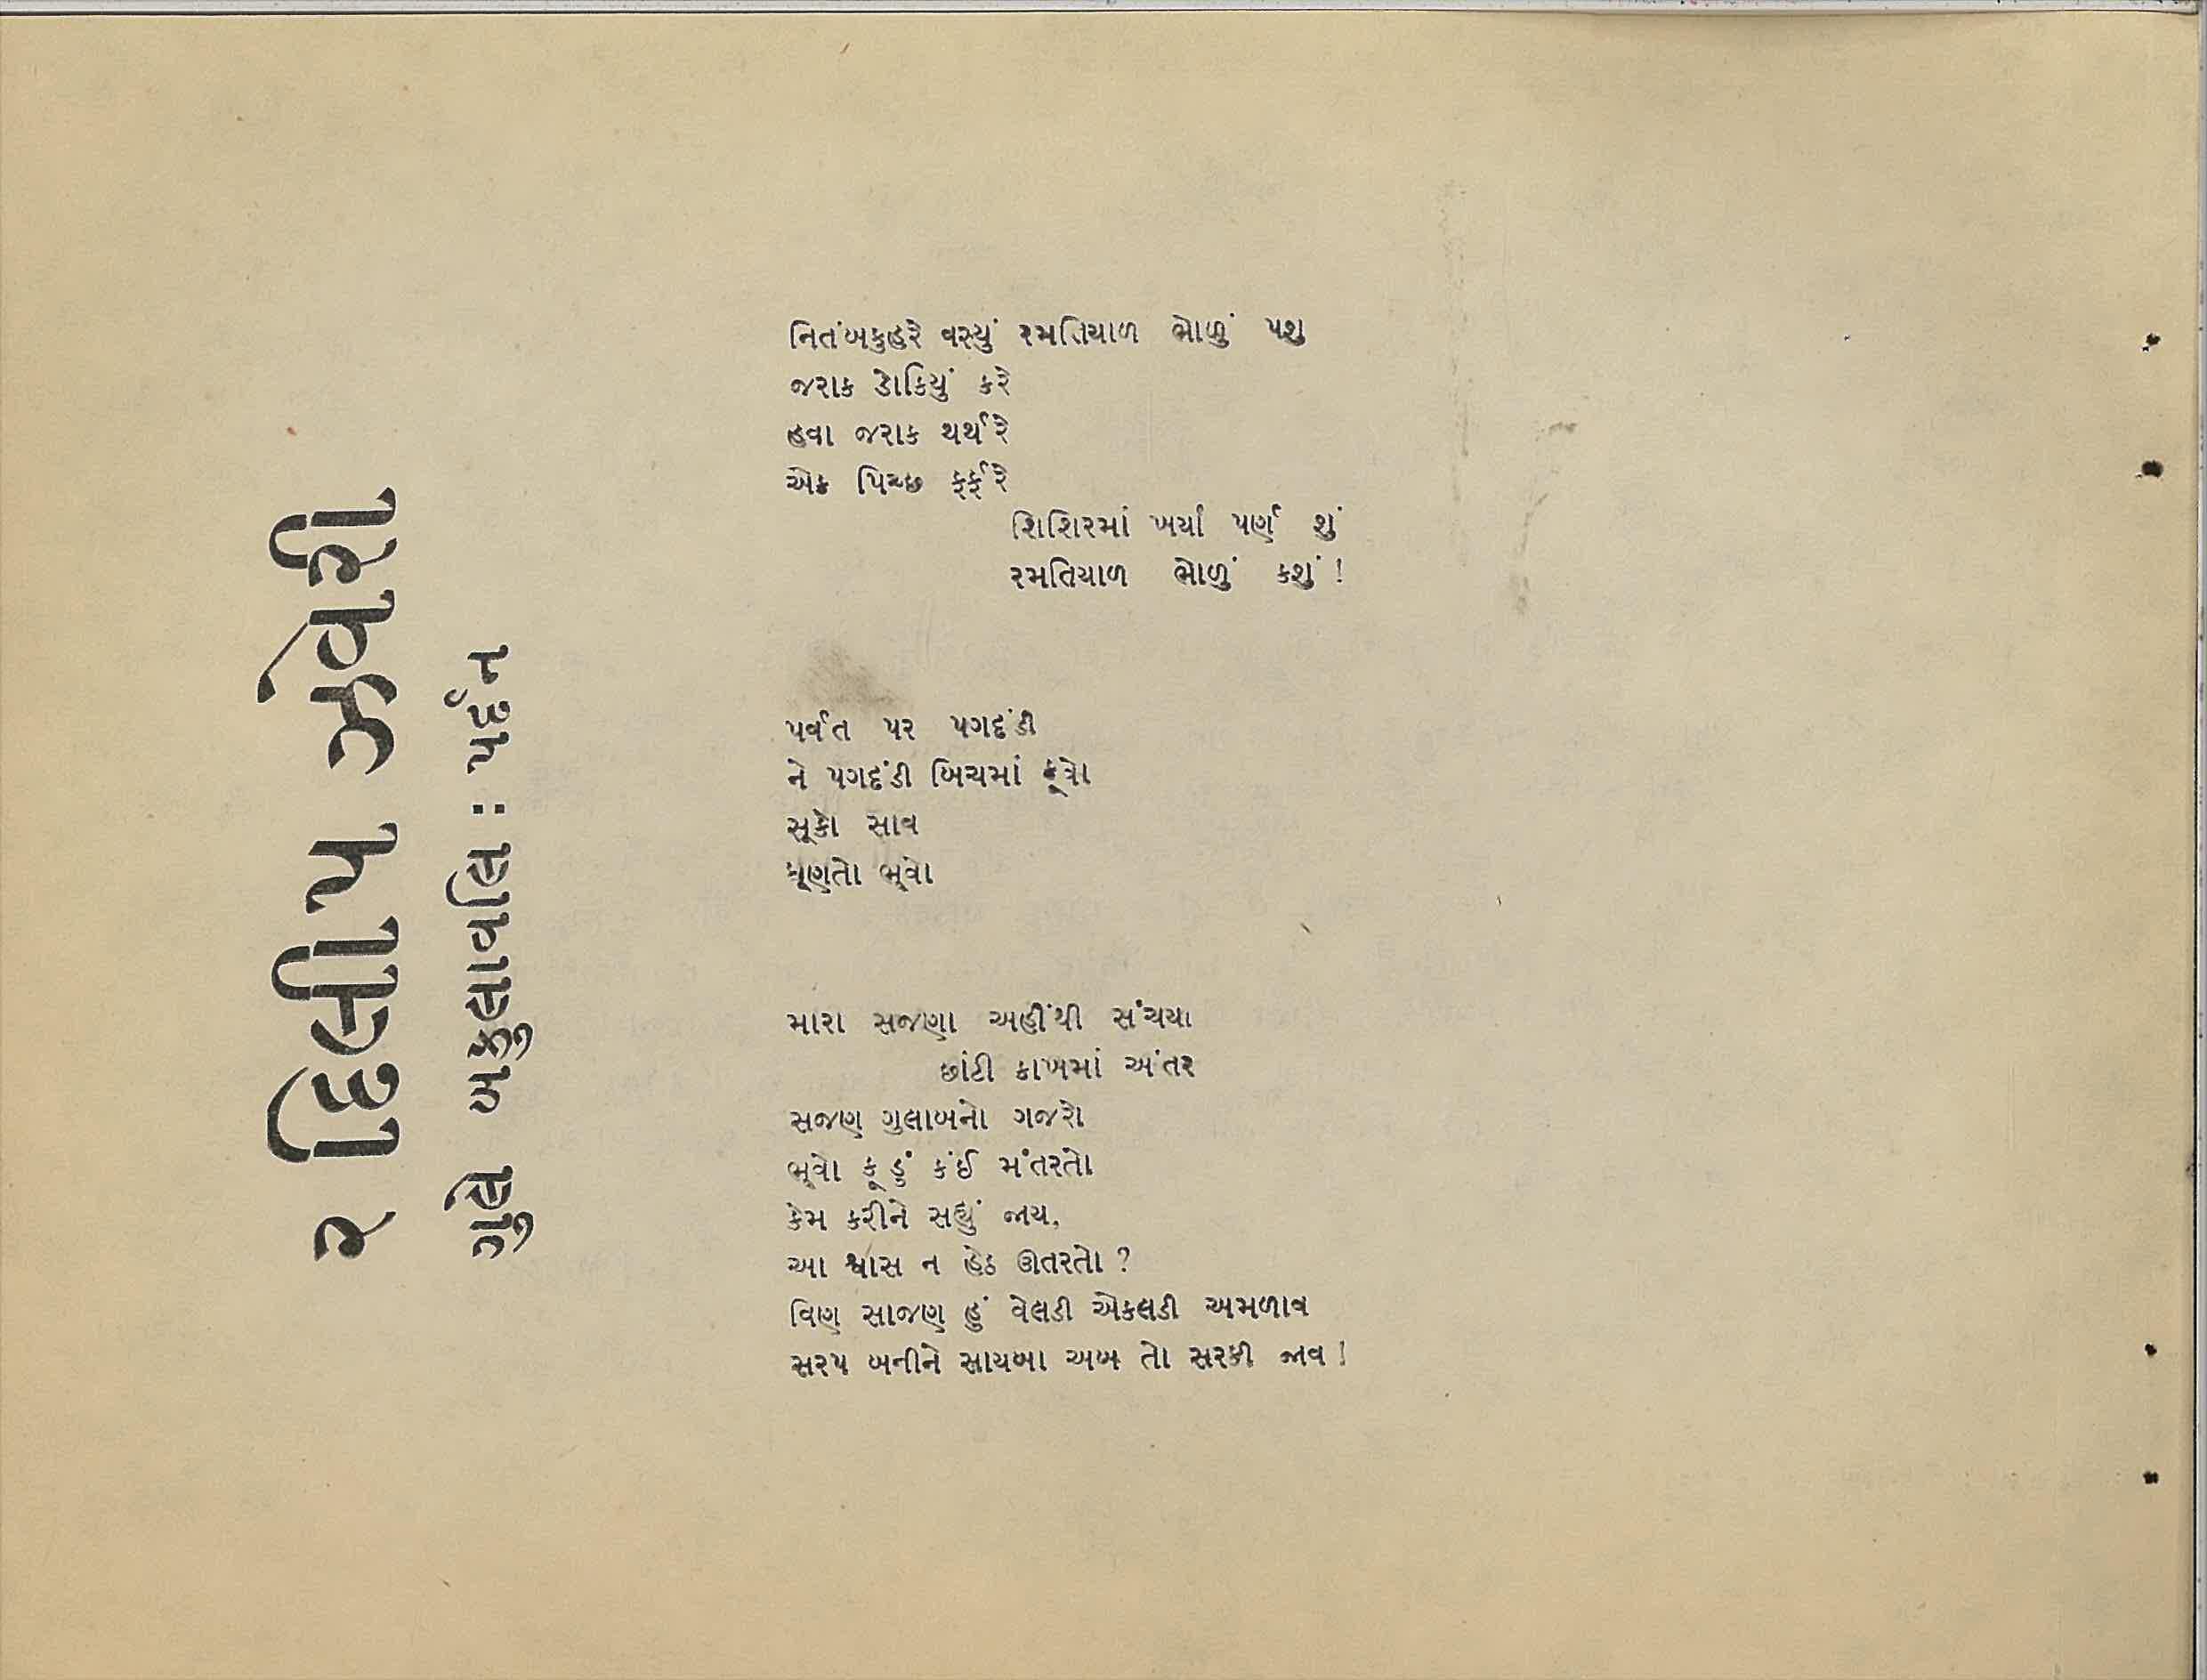 ૨ દિલીપ ઝવેરી
ગુલે બકુલાવલિ : પર્દન
નિતંબકુહરે વસ્યું રમતિયાળ ભોળું પશુ
જરાક ડોકિયું કરે
હવા જરાક થર્થરે
એક પિચ્છ ફર્ફરે
શિશિરમાં ખર્યાં પર્ણ શું
રમતિયાળ ભોળું કશું !
પર્વત પર પગદંડી
ને પગદંડી બિચમાં કૂવો
સૂકો સાવ
ધૂણતો ભૂવો
મારા સજણા અહીંથી સંચર્યા
છાંટી કાખમાં અંતર
સજણ ગુલાબનો ગજરો
ભૂવો કૂડું કંઈ મંતરતો
કેમ કરીને સહ્યું જાય,
આ શ્વાસ ન હેઠ ઊતરતો ?
વિણ સાજણ હું વેલડી એકલડી અમળાવ
સરપ બનીને સાયબા અબ તો સરકી જાવ !